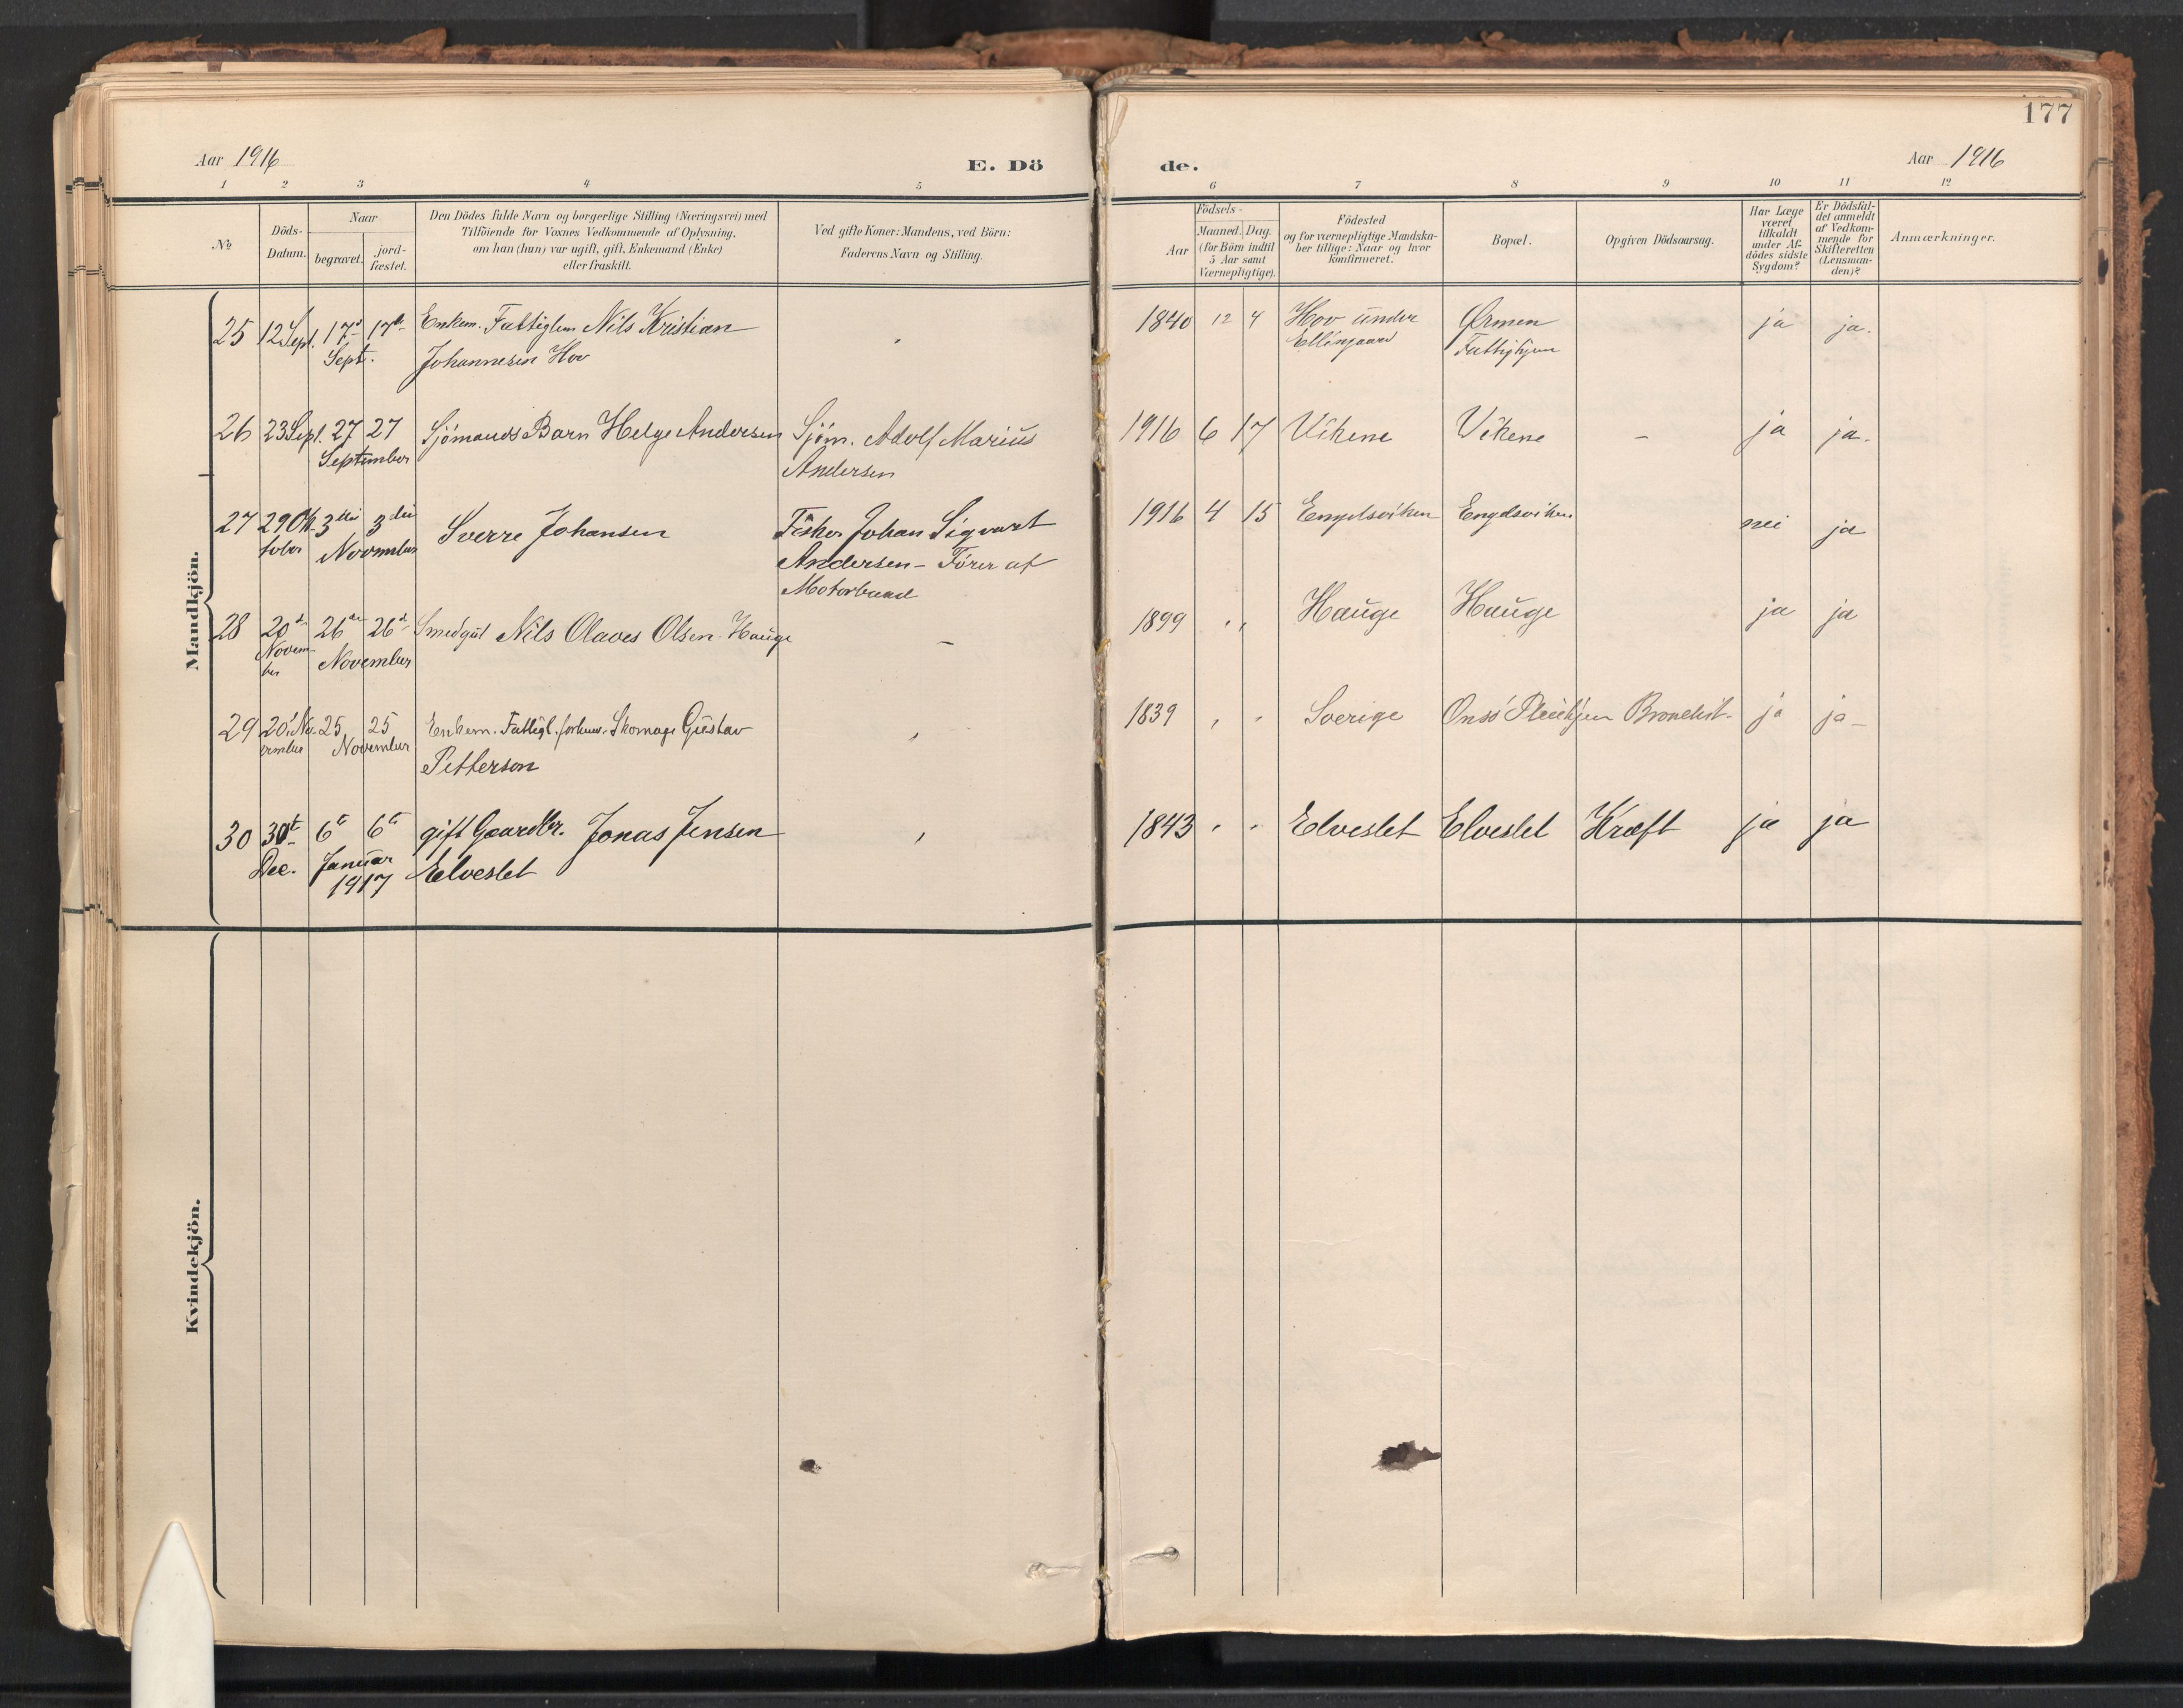 177
Aar 1916
E. Dö
de.
Aar 1916
1 2 3 4 5 6 7 8 9 10 11 12
No
Döds-
Datum.
Naar
begravet.
jord-
fæstet.
Den Dödes fulde Navn og borgerlige Stilling (Næringsvei) med
Tilföiende for Voxnes Vedkommende af Oplysning,
om han (hun) var ugift, gift, Enkemand (Enke)
eller fraskilt.
Ved gifte Koner: Mandens, ved Börn:
Faderens Navn og Stilling.
Aar
Födsels-
Maaned. Dag.
(for Börn indtil
5 Aar samt
Værnepligtige).
Födested
og for værnepligtige Mandska-
ber tillige: Naar og hvor
konfirmeret.
Bopæl.
Opgiven Dödsaarsag.
Har Læge
været
tilkaldt
under Af-
dödes sidste
Sygdom?
Er Dödsfal-
det anmeldt
af Vedkom-
mende for
Skifteretten
(Lensman-
den)?
Anmærkninger.
Mandkjön.
25 12 Sept. 17d 17d Enkem. Fattiglem Nils Kristian 1840 12 4 Hov under Ørmen ja ja.
Sept. Johannesen Hov Ellingaard Fattighjem
26 23 Sept. 27 27 Sjömands Barn Helge Andersen Sjöm. Adolf Marius 1916 6 17 Vikene Vikene – ja ja.
September Andersen
27 29 Ok- 3die 3die Sverre Johansen Fisker Johan Sigvart 1916 4 15 Engelsviken Engelsviken nei ja
tober November Andersen – Förer af
Motorbaad
28 20d 26de 26d Smedgut Nils Olaves Olsen Hauge – 1899 " " Hauge Hauge ja ja
Novem- November
ber
29 20 No- 25 25 Enkem. Fattigl. forhenv. Skomage Gustav 1839 " " Sverige Onsö Pleiehjem Bronchit. ja ja
vember November Petterson
30 30t 6te 6te gift Gaardbr. Jonas Jensen 1843 " " Elveslet Elveslet Kræft ja ja
Dec. Januar Elveslet
1917
Kvindekjön.